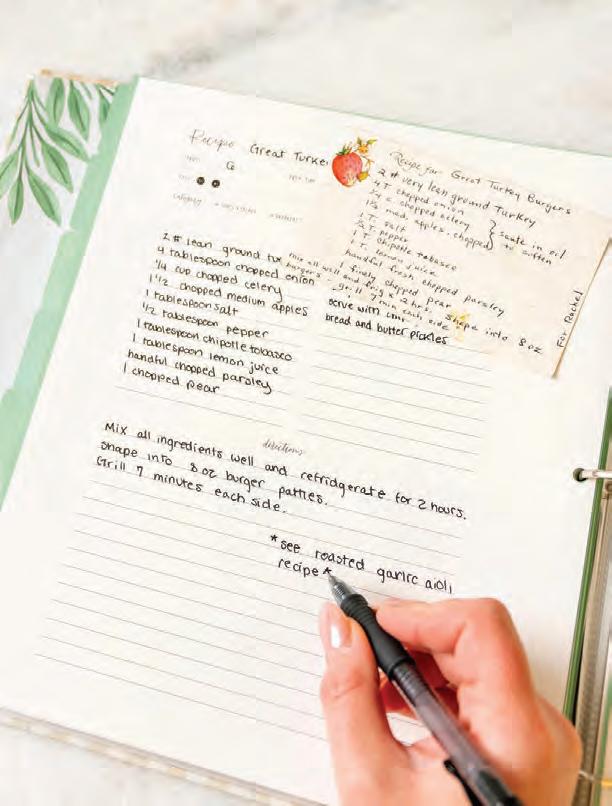 Recipe Great Turke
Category
2 # lean ground tur
4 tablespoon chopped onion
1/4 cup chopped celery
1 1/2 chopped medium apples
1 tablespoon salt
1/2 tablespoon pepper
1 tablespoon chipotle tobasco
1 tablespoon lemon juice
handful chopped parsley
1 chopped pear
serve with
bread and butter pickles
Recipe for Great Turkey Burgers
2 # very lean ground Turkey
4 T. chopped onion
1/4 c. chopped celery
1 1/2 med. apples, chopped } saute in oil to soften
1 T. salt
1/2 T. pepper
1 T. Chipotle tabasco
1 T. lemon juice
handful fresh chopped parsley
1 finely chopped pear
mix all well and frig 2 hrs. shape into 8 oz
burgers - grill 7 min each side
For Rachel
directions
Mix all ingredients well and refridgerate for 2 hours.
Shape into 8 oz burger patties.
Grill 7 minutes each side.
*see roasted garlic aioli
recipe*